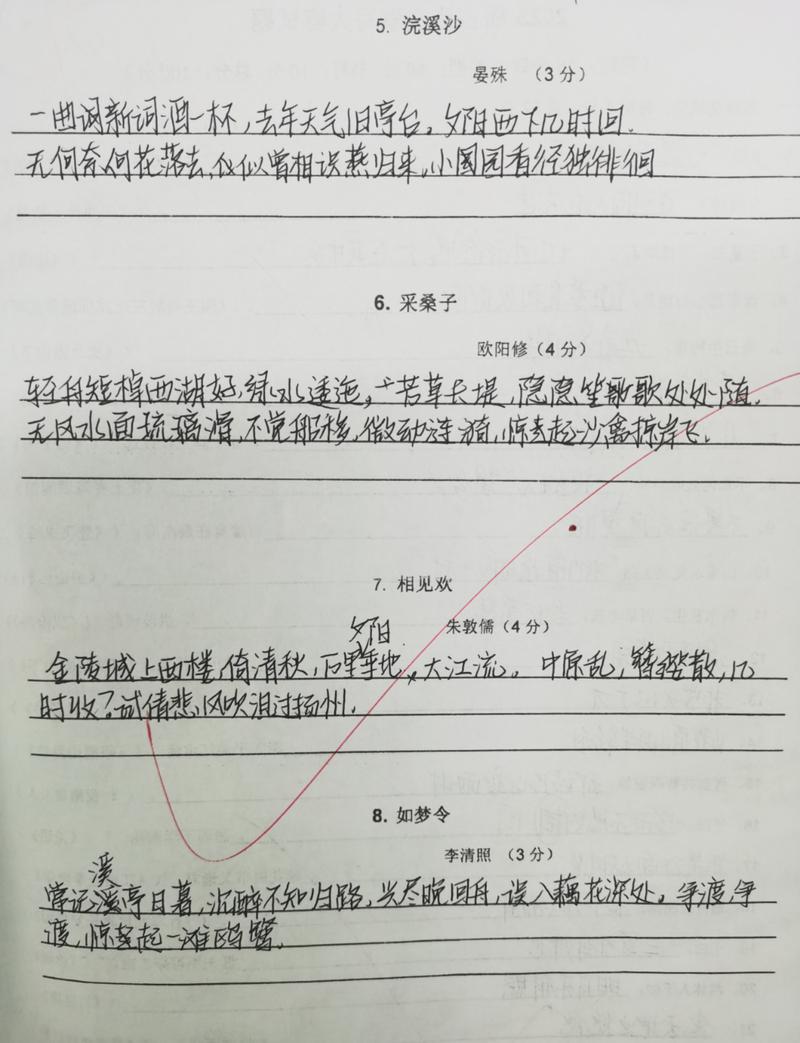 5. 浣溪沙
晏殊 (3分)
一曲词新词酒一杯,去年天气旧亭台。夕阳西下几时回.
无何奈何花落去,似似曾相识燕归来,小园园香径独徘徊
6. 采桑子
欧阳修(4分)
轻舟短棹西湖好,绿水逶迤,芳草长堤,隐隐笙歌歌处处随.
无风水面琉璃滑,不觉那移,微动涟漪,惊起沙禽掠岸飞.
7. 相见欢
夕阳
朱敦儒(4分)
金陵城上西楼,倚清秋,万里垂地,大江流。中原乱,簪缨散,几
时收?试倩悲风吹泪过扬州.
8. 如梦令
李清照 (3分)
溪
常记溪亭日暮,沉醉不知归路,兴尽晚回舟,误入藕花深处。争渡,争
渡,惊起一滩鸥鹭.